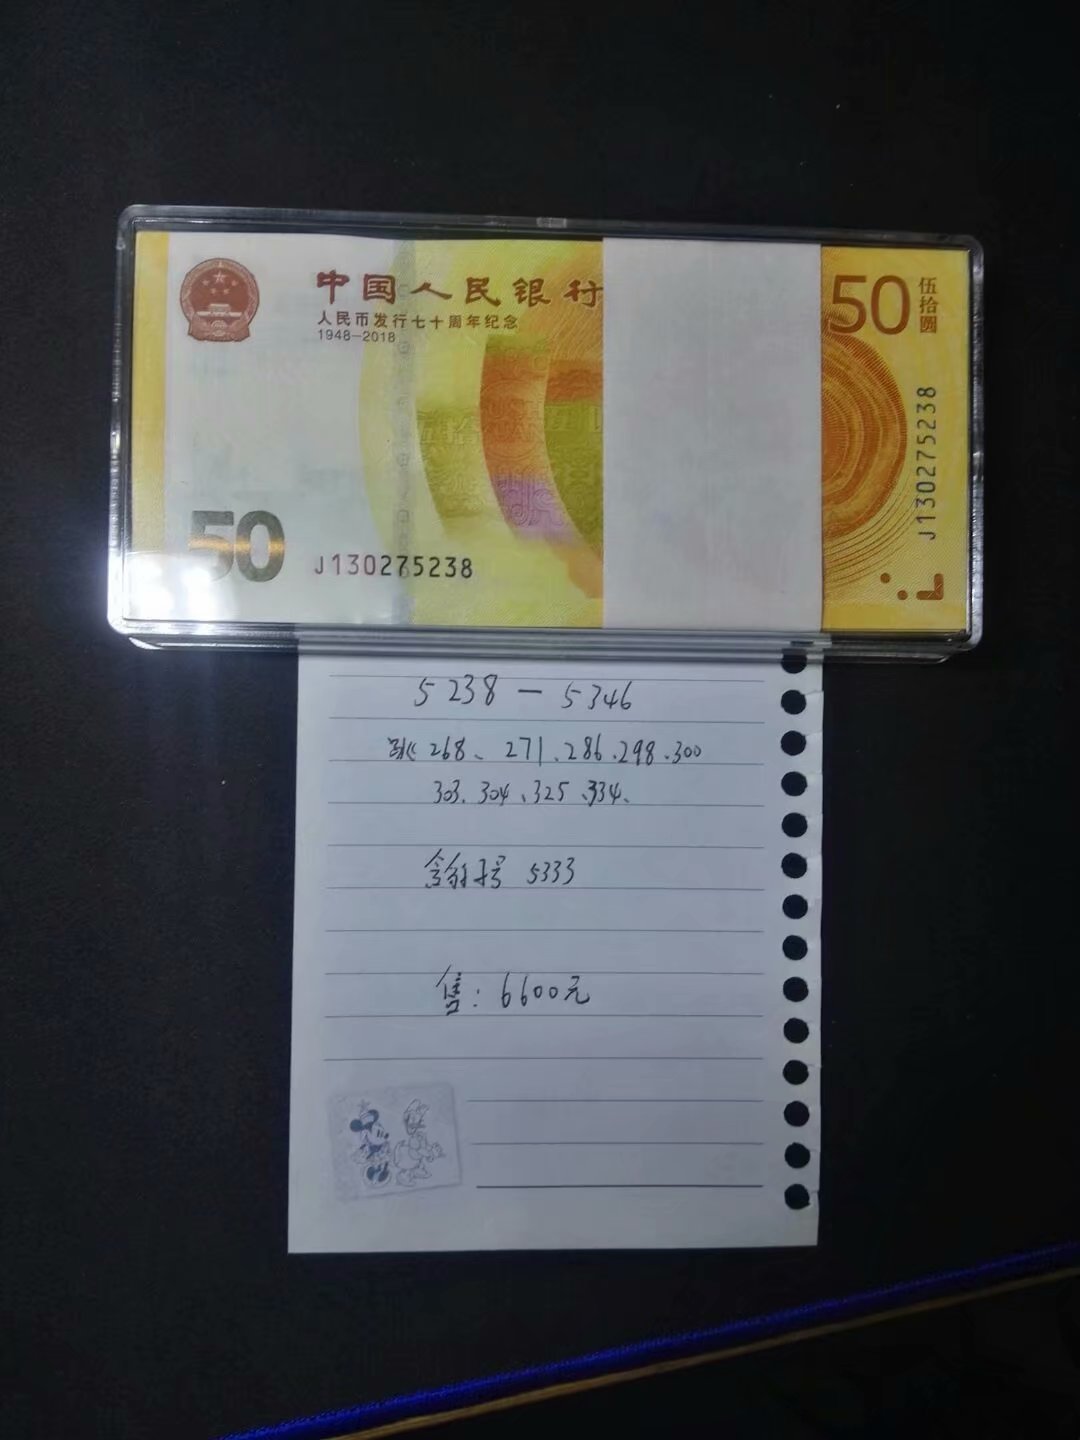 中国人民银行
人民币发行七十周年纪念
1948-2018
50
伍拾圆
J130275238
50
J130275238
5238 — 5346
跳 268、271、286、298、300
303、304、325、334、
含豹子号 5333
售：6600元